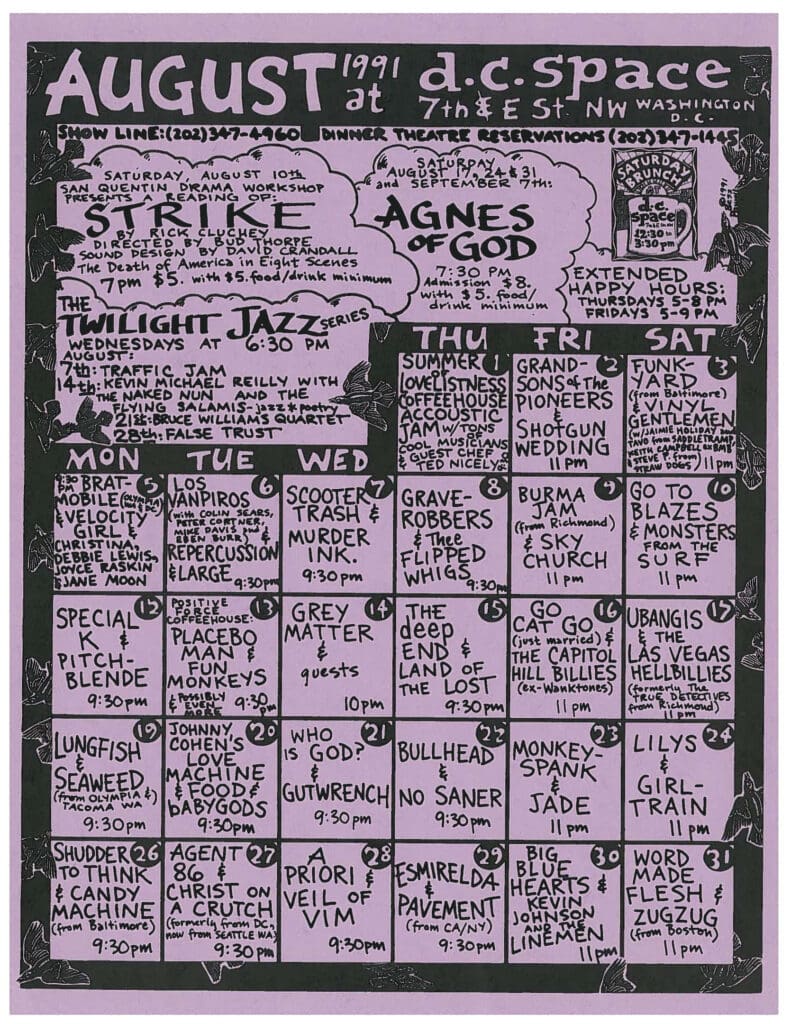 AUGUST 1991 at d.c. space
7th & E St. NW WASHINGTON D.C.
SHOW LINE: (202) 347-4960 DINNER THEATRE RESERVATIONS (202) 347-1445
SATURDAY, AUGUST 10th
SAN QUENTIN DRAMA WORKSHOP
PRESENTS A READING OF:
STRIKE
BY RICK CLUCHEY
DIRECTED BY BUD THORPE
SOUND DESIGN BY DAVID CRANDALL
The Death of America in Eight Scenes
7pm $5. with $5. food/drink minimum
SATURDAY
AUGUST 17, 24 & 31
and SEPTEMBER 7th:
AGNES
OF GOD
7:30 PM
Admission $8.
with $5. food/
drink minimum
SATURDAY
BRUNCH
d.c.
space
12:30 to
3:30 pm
©1991
EXTENDED
HAPPY HOURS:
THURSDAYS 5-8 PM
FRIDAYS 5-9 PM
THE
TWILIGHT JAZZ SERIES
WEDNESDAYS AT 6:30 PM
AUGUST:
7th: TRAFFIC JAM
14th: KEVIN MICHAEL REILLY WITH
THE NAKED NUN AND THE
FLYING SALAMIS-jazz*poetry
21st: BRUCE WILLIAMS QUARTET
28th: FALSE TRUST
THU FRI SAT
1
SUMMER
OF
LOVELISTNESS
COFFEEHOUSE
ACCOUSTIC
JAM w/TONS
OF
COOL MUSICIANS
& GUEST CHEF
TED NICELY
2
GRAND-
SONS of The
PIONEERS
&
SHOTGUN
WEDDING
11 pm
3
FUNK-
YARD
(from Baltimore)
& VINYL
GENTLEMEN
(w/JAIMIE HOLIDAY and
TAVO from SADDLETRAMP,
KEITH CAMPBELL ex BMB
& STEVE P. from
STRAW DOGS) 11pm
MON TUE WED
5
9:30
PM
BRAT-
MOBILE (OLYMPIA
WA & DC)
& VELOCITY
GIRL &
CHRISTINA,
DEBBIE LEWIS,
JOYCE RASKIN
& JANE MOON
6
LOS
VANPIROS
(with COLIN SEARS,
PETER CORTNER,
MIKE DAVIS and
EBEN BURR) &
REPERCUSSION
& LARGE 9:30pm
7
SCOOTER
TRASH &
MURDER
INK.
9:30pm
8
GRAVE-
ROBBERS
& Thee
FLIPPED
WHIGS
9:30pm
9
BURMA
JAM
(from Richmond)
& SKY
CHURCH
11 pm
10
GO TO
BLAZES
& MONSTERS
FROM THE
SURF
11 pm
12
SPECIAL
K &
PITCH-
BLENDE
9:30pm
13
POSITIVE
FORCE
COFFEEHOUSE:
PLACEBO
MAN &
FUN
MONKEYS
& POSSIBLY
EVEN
MORE 9:30
pm
14
GREY
MATTER
&
guests
10pm
15
THE
deep
END &
LAND OF
THE LOST
9:30pm
16
GO
CAT GO
(just married) &
THE CAPITOL
HILL BILLIES
(ex-Wanktones)
11 pm
17
UBANGIS
& THE
LAS VEGAS
HELLBILLIES
(formerly The
TRUE DETECTIVES
from Richmond)
11 pm
19
LUNGFISH
&
SEAWEED
(from OLYMPIA &
TACOMA WA)
9:30pm
20
JOHNNY
COHEN'S
LOVE
MACHINE
& FOOD &
bABYGODS
9:30pm
21
WHO
IS GOD?
&
GUTWRENCH
9:30pm
22
BULLHEAD
&
NO SANER
9:30pm
23
MONKEY-
SPANK
&
JADE
11 pm
24
LILYS
&
GIRL-
TRAIN
11 pm
26
SHUDDER
TO THINK
& CANDY
MACHINE
(from Baltimore)
9:30pm
27
AGENT
86 &
CHRIST ON
A CRUTCH
(formerly from DC,
now from SEATTLE WA)
9:30pm
28
A
PRIORI &
VEIL OF
VIM
9:30pm
29
ESMIRELDA
&
PAVEMENT
(from CA/NY)
9:30pm
30
BIG
BLUE
HEARTS &
KEVIN
JOHNSON
AND THE
LINEMEN
11pm
31
WORD
MADE
FLESH &
ZUGZUG
(from Boston)
11 pm